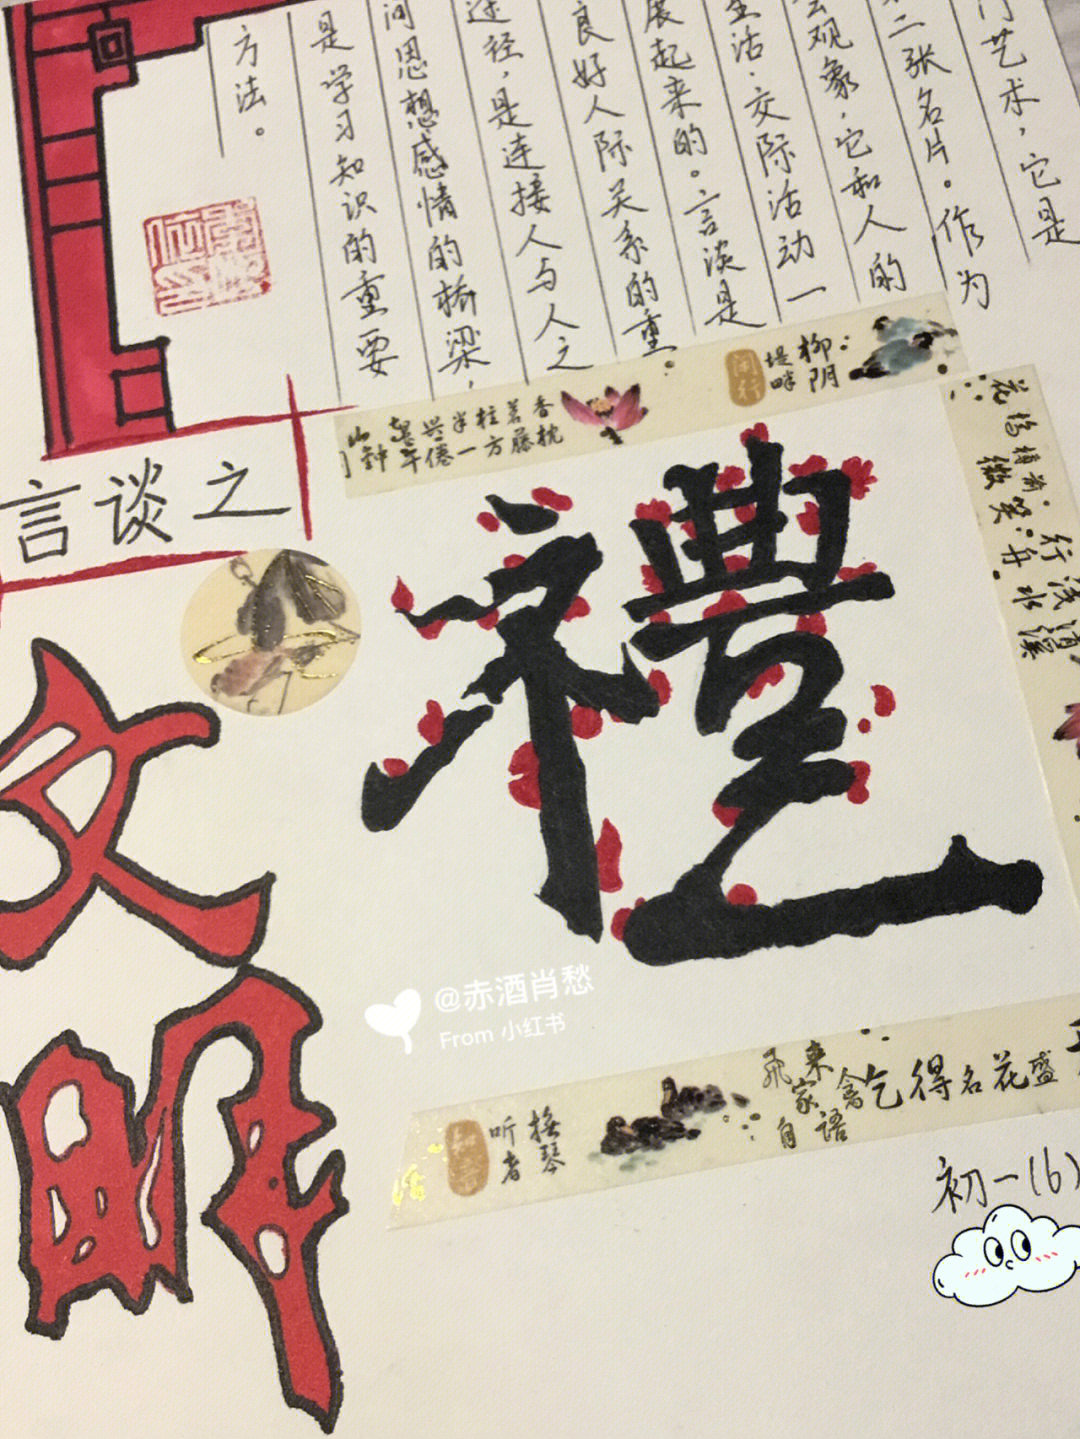 门艺术，它是
二张名片。作为
会现象，它和人的
生活．交际活动一
展起来的。言谈是
良好人际关系的重
途径，是连接人与人之
间思想感情的桥梁，
是学习知识的重要
方法。
言谈之
文明
禮
柳阴
堤畔
闲行
香枕
茗藤
柱方
半一
兴倦
花坞樽前
微笑
行
浅
清溪
舟水
@赤酒肖愁
From 小红书
抚琴
听者
知音
飛来
家舍
自语
乞得名花盛
初一(6)